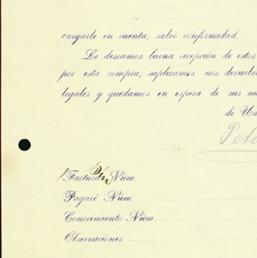 cargarle en cuenta, salvo conformidad.
Le deseamos buena recepción de estos
por esta compra, suplicamos nos devuelva
legales y quedamos en espera de sus nu
de Ud
Pete
Factura Núm.
Pagaré Núm.
Conocimiento Núm.
Observaciones